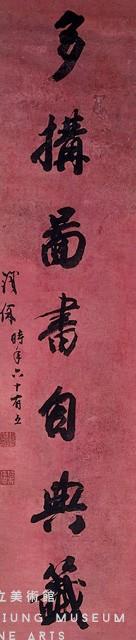 多購圖書自典籤
鐵保
時年六十有五
立美術館
IUNG MUSEUM
NE ARTS